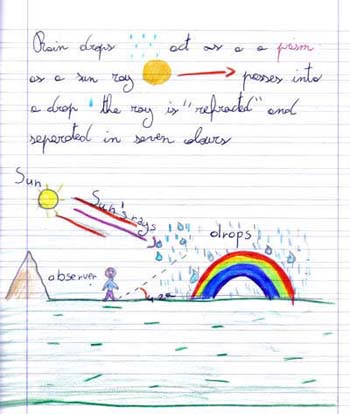 Rain drops act as a a prism
as a sun ray passes into
a drop the ray is "refracted" and
seperated in seven colours
Sun
Sun's rays
drops
observer
42°